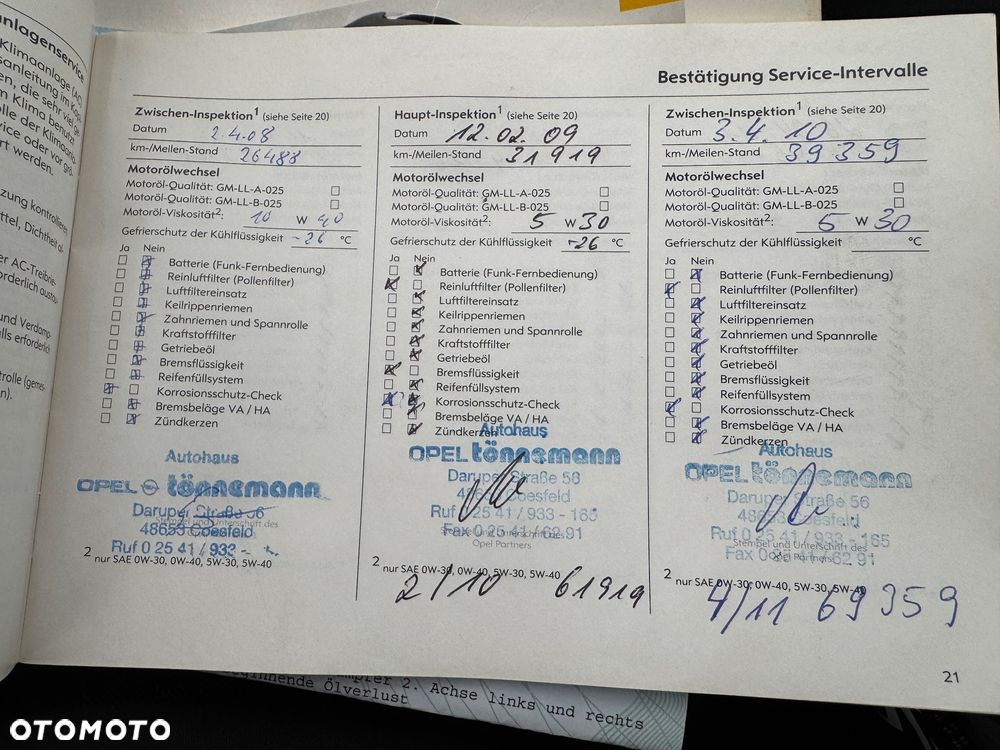 nlagenservice
Klimaanlage (AC)
sanleitung im Kapi-
en, die sehr viel ge-
m Klima benutzt
olle der Klimaanla-
vice oder vor grö-
ert werden.
zung kontrollieren
ttel, Dichtheit
er AC-Treibrie-
orderlich austau-
und Verdamp-
alls erforderlich
trolle (gemes-
n).
Bestätigung Service-Intervalle
Zwischen-Inspektion¹ (siehe Seite 20)
Datum 2.4.08
km-/Meilen-Stand 26488
Motorölwechsel
Motoröl-Qualität: GM-LL-A-025
Motoröl-Qualität: GM-LL-B-025
Motoröl-Viskosität²: 10 W 40
Gefrierschutz der Kühlflüssigkeit -26 °C
Ja Nein
Batterie (Funk-Fernbedienung)
Reinluftfilter (Pollenfilter)
Luftfiltereinsatz
Keilrippenriemen
Zahnriemen und Spannrolle
Kraftstofffilter
Getriebeöl
Bremsflüssigkeit
Reifenfüllsystem
Korrosionsschutz-Check
Bremsbeläge VA / HA
Zündkerzen
Autohaus
OPEL tönnemann
Daruper Straße 56
48653 Coesfeld
Stempel und Unterschrift des
Ruf 0 25 41 / 933 -
2 nur SAE 0W-30, 0W-40, 5W-30, 5W-40
Haupt-Inspektion¹ (siehe Seite 20)
Datum 12.02.09
km-/Meilen-Stand 31919
Motorölwechsel
Motoröl-Qualität: GM-LL-A-025
Motoröl-Qualität: GM-LL-B-025
Motoröl-Viskosität²: 5 W 30
Gefrierschutz der Kühlflüssigkeit -26 °C
Ja Nein
Batterie (Funk-Fernbedienung)
Reinluftfilter (Pollenfilter)
Luftfiltereinsatz
Keilrippenriemen
Zahnriemen und Spannrolle
Kraftstofffilter
Getriebeöl
Bremsflüssigkeit
Reifenfüllsystem
Korrosionsschutz-Check
Bremsbeläge VA / HA
Zündkerzen
Autohaus
OPEL tönnemann
Daruper Straße 56
48653 Coesfeld
Ruf 0 25 41 / 933 - 165
Fax 0 25 41 / 62 91
Stempel und Unterschrift des
Opel Partners
2 nur SAE 0W-30, 0W-40, 5W-30, 5W-40
2/10 61919
Zwischen-Inspektion¹ (siehe Seite 20)
Datum 3.4.10
km-/Meilen-Stand 39359
Motorölwechsel
Motoröl-Qualität: GM-LL-A-025
Motoröl-Qualität: GM-LL-B-025
Motoröl-Viskosität²: 5 W 30
Gefrierschutz der Kühlflüssigkeit °C
Ja Nein
Batterie (Funk-Fernbedienung)
Reinluftfilter (Pollenfilter)
Luftfiltereinsatz
Keilrippenriemen
Zahnriemen und Spannrolle
Kraftstofffilter
Getriebeöl
Bremsflüssigkeit
Reifenfüllsystem
Korrosionsschutz-Check
Bremsbeläge VA / HA
Zündkerzen
Autohaus
OPEL tönnemann
Daruper Straße 56
48653 Coesfeld
Ruf 0 25 41 / 933 - 165
Stempel und Unterschrift des
Fax 0 25 41 / 62 91
Opel Partners
2 nur SAE 0W-30, 0W-40, 5W-30, 5W-40
4/11 69359
21
2. Achse links und rechts
Ölverlust
OTOMOTO